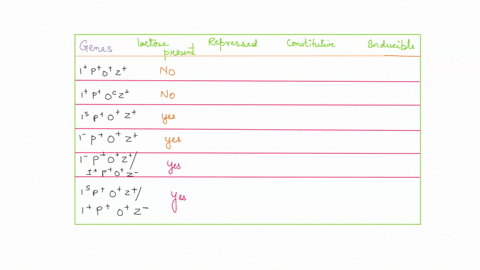 Genes Lactose present Repressed Constitutive Inducible
I⁺ P⁺ O⁺ Z⁺ NO
I⁺ P⁺ Oᶜ Z⁺ NO
Iˢ P⁺ O⁺ Z⁺ yes
I⁻ P⁺ O⁺ Z⁺ yes
I⁻ P⁺ O⁺ Z⁺/ yes
I⁺ P⁺ O⁺ Z⁻
Iˢ P⁺ O⁺ Z⁺/ Yes
I⁺ P⁺ O⁺ Z⁻